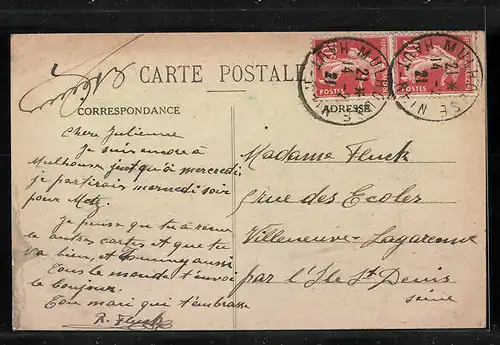 CARTE POSTALE
CORRESPONDANCE
ADRESSE
Chere Julienne
Je suis encore à
Mulhouse jusqu'à mercredi
je partirais mercredi soir
pour Metz.
Je pense que tu à recu
la autres cartes et que tu
va bien, et aussi
Tous le monde t'envoi
le bonjour.
Ton mari qui t'embrasse
R. Fluck
Madame Fluck
rue des Ecoles
Villeneuve-Lagarenne
par l'Ile St Denis
Seine
POSTES
21
14
21
POSTES
21
14
21